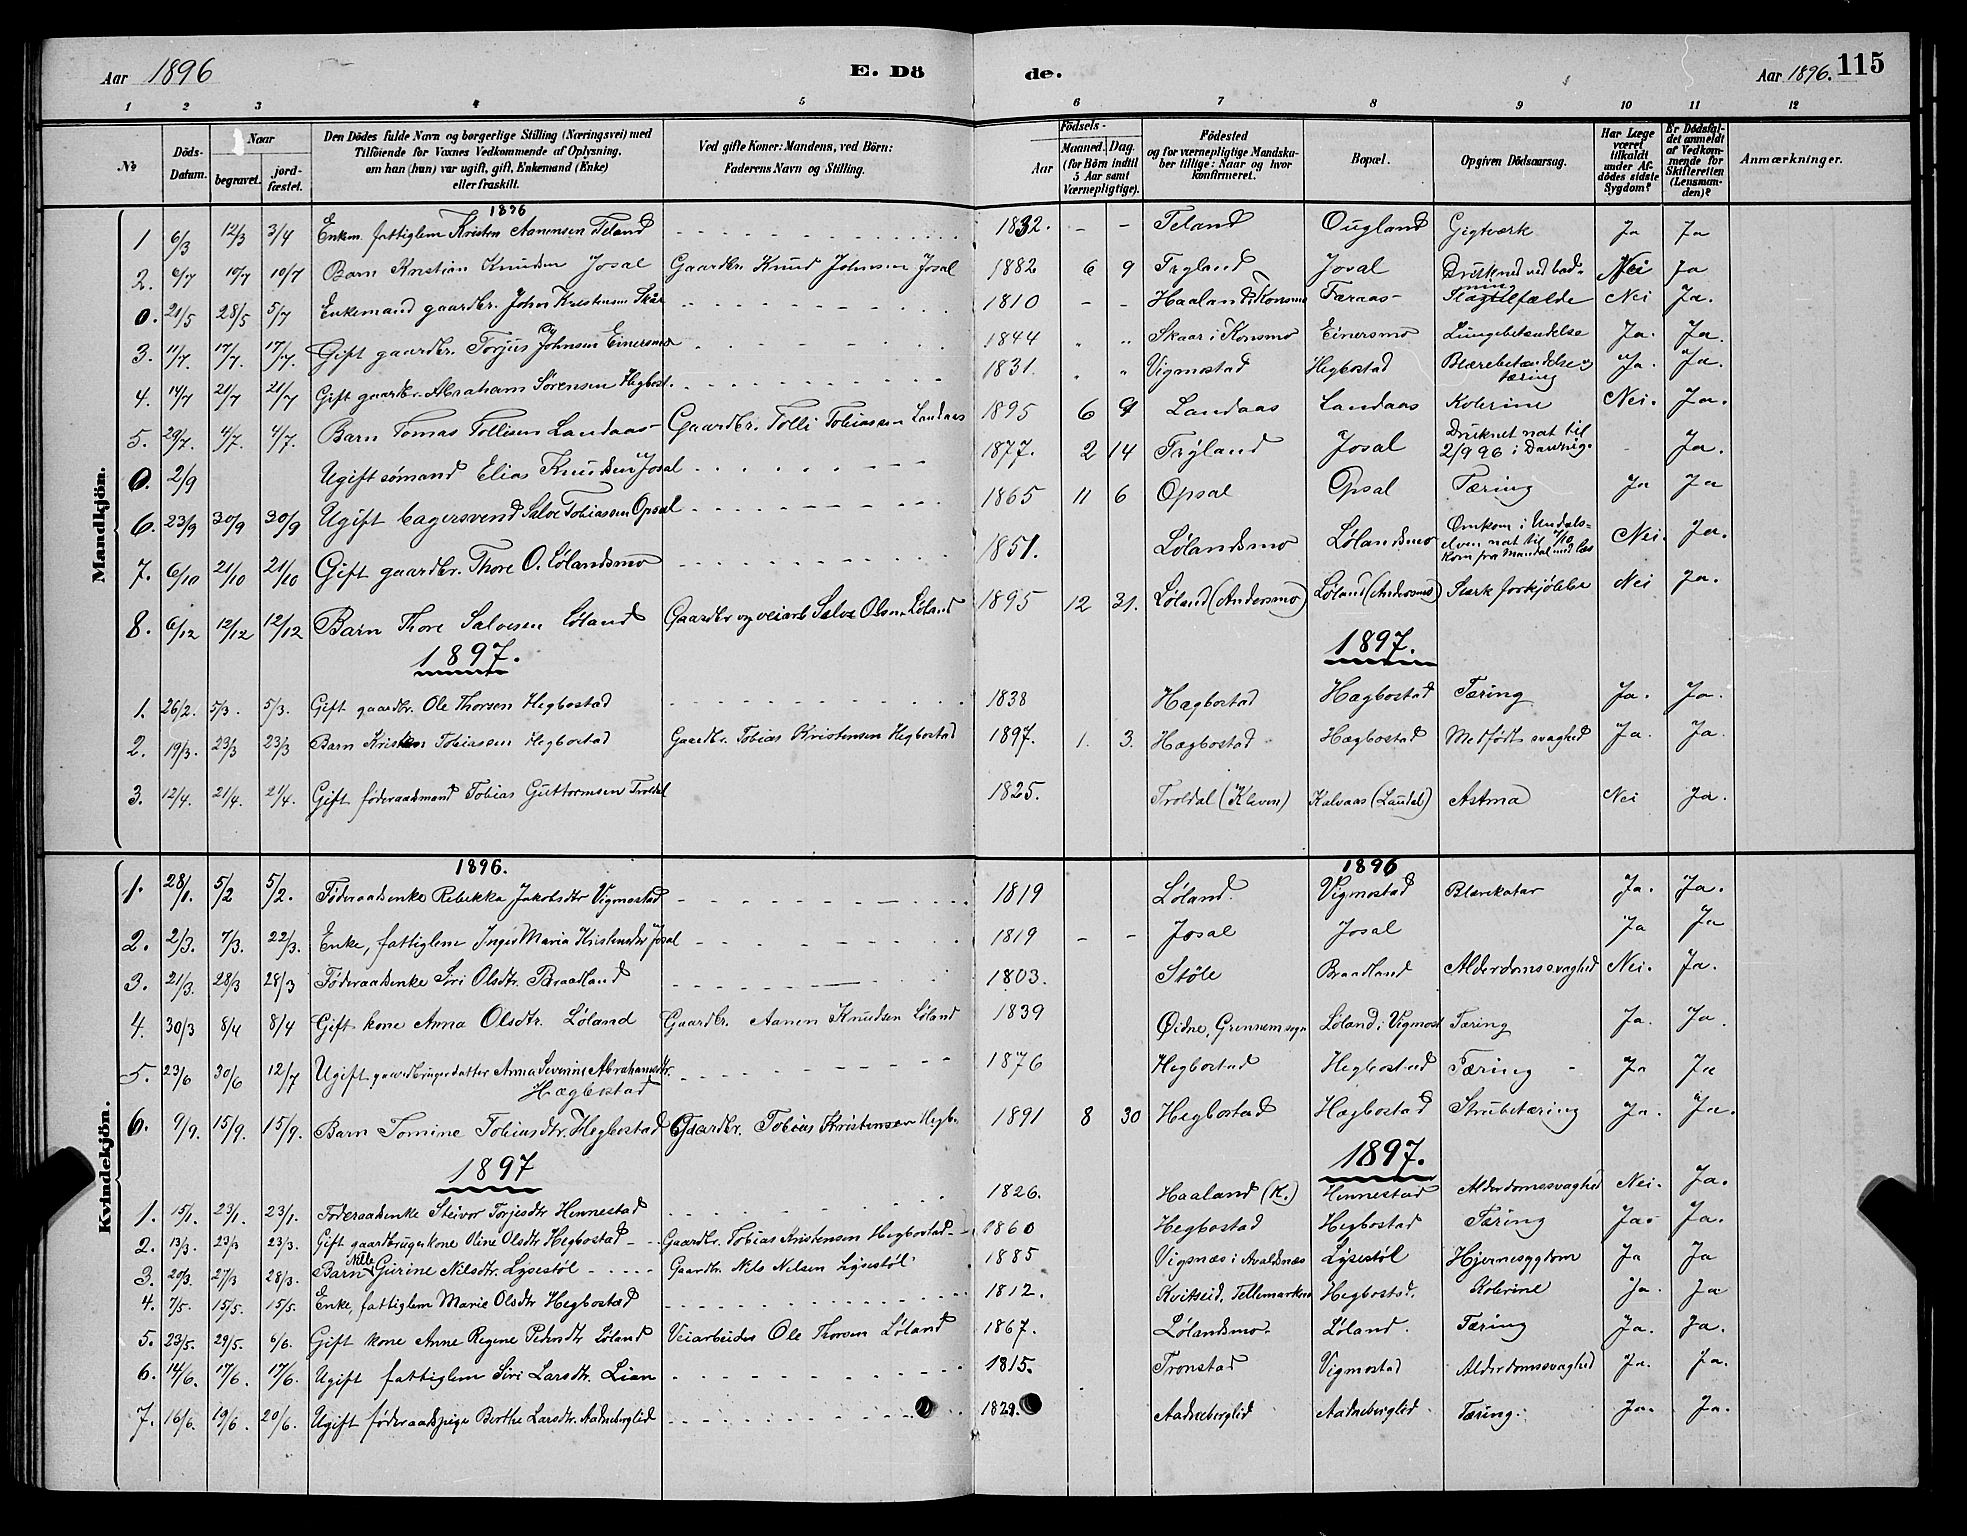 Aar 1896 E. Dö de. Aar 1896. 115
1 2 3 4 5 6 7 8 9 10 11 12
No Döds-Datum. Naar begravet. jordfæstet. Den Dödes fulde Navn og borgerlige Stilling (Næringsvei) med Tilföiende for Voxnes Vedkommende af Oplysning, om han (hun) var ugift, gift, Enkemand (Enke) eller fraskilt. Ved gifte Koner: Mandens, ved Börn: Faderens Navn og Stilling. Födsels- Aar Maaned. Dag. (for Börn indtil 5 Aar samt Værnepligtige). Födested og for værnepligtige Mandskaber tillige: Naar og hvor konfirmeret. Bopæl. Opgiven Dödsaarsag. Har Læge været tilkaldt under Afdödes sidste Sygdom? Er Dödsfaldet anmeldt af Vedkommende for Skifteretten (Lensmanden)? Anmærkninger.
Mandkjön.
1896
1 6/3 12/3 3/4 Enkem. fattiglem Kristen Aanensen Teland 1832. - - Teland Ougland Gigtværk Ja Ja
2. 6/7 10/7 10/7 Barn Kristian Knudsen Josal Gaardbr. Knud Johnsen Josal 1882 6 9 Tryland Josal Druknet ved badning Nei Ja
0. 21/5 28/5 5/7 Enkemand gaardbr. John Kristensen Skår 1810 - - Haaland i Konsmo Færaas Slagtilfælde Nei Ja.
3. 11/7. 17/7. 17/7. Gift gaardbr. Torjus Johnsen Einersmo 1844 " " Skaar i Konsmo Einersmo Lungebetændelse Ja. Ja.
4. 14/7 21/7 21/7 Gift gaardbr. Abraham Sørensen Hegbost. 1831. " " Vigmostad Hegbostad Blærebetændelse og tæring Ja. Ja.
5. 29/7. 4/7. 4/7. Barn Tomas Tollisen Landaas Gaardbr. Tolli Tobiassen Landaas 1895 6 9 Landaas Landaas Kolerine Nei. Ja.
0. 2/9 Ugift sømand Elias Knudsen Josal 1877. 2 14 Trÿland Josal Druknet nat til 2/9 96 i - Ja.
6. 23/9 30/9 30/9 Ugift bagersvend Salve Tobiassen Opsal 1865 11 6 Opsal Opsal Tæring Ja Ja
7. 6/10 21/10 21/10 Gift gaardbr. Thore O. Lølandsmo 1851. Lølandsmo Lølandsmo Omkom i Undals-elven nat til 7/10 kom fra Mandal med læs Nei. Ja.
8. 6/12 12/12 12/12 Barn Thore Salvesen Løland Gaardbr og veiarb Salve Olsen Løland 1895 12 31. Løland (Andersmo) Løland (Andersmo) Stærk forkjølelse Nei Ja.
1897. 1897.
1. 26/2. 5/3. 5/3. Gift gaardbr. Ole Thorsen Hegbostad 1838 Hægbostad Hægbostad Tæring Ja. Ja.
2. 19/3. 23/3 23/3 Barn Kristen Tobiassen Hegbostad Gaardbr. Tobias Kristensen Hegbostad 1897. 1. 3. Hægbostad Hægbostad Medfødt svaghed Ja. Ja.
3. 12/4. 21/4. 21/4. Gift føderaadsmand Tobias Guttormsen Troldal 1825. Troldal (Kleven) Kalvaas (Laudal) Astma Nei Ja.
Kvindekjön.
1896. 1896
1. 28/1. 5/2 5/2. Føderaadsenke Rebekka Jakobsdtr Vigmostad 1819 Løland. Vigmostad Blærekatar Ja. Ja.
2. 2/3. 7/3. 22/3. Enke, fattiglem Inger Maria Kristensdtr Josal 1819 - - Josal Josal Ja Ja
3. 21/3. 28/3 28/3 Føderaadsenke Siri Olsdtr. Braadland 1803. Støle Braadland Alderdomssvaghed Nei. Ja.
4. 30/3 8/4 8/4 Gift kone Anna Olsdtr. Løland Gaardbr. Aanen Knudsen Løland 1839 Øidne, Grennem sogn Løland i Vigmost Tæring Ja. Ja.
5. 23/6 30/6 12/7 Ugift gaardbrugerdatter Anna Severine Abrahamsdtr. Hægbostad 1876 Hegbostad Hegbostad Tæring Ja Ja
6. 9/9. 15/9. 15/9. Barn Tomine Tobiasdtr. Hegbostad Gaardbr. Tobias Kristensen Hegb. 1891 8 30 Hegbostad Hægbostad Strubetæring Ja. Ja.
1897 1897.
1. 15/1. 23/1. 23/1. Føderaadsenke Steivor Torjesdtr Hennestad 1826. Haaland (K.) Hennestad Alderdomssvaghed Nei. Ja.
2. 13/3. 23/3 23/3. Gift gaardbrugerkone Oline Olsdtr Hegbostad Gaardbr. Tobias Kristensen Hegbostad 1860 Hegbostad Hegbostad Tæring Ja. Ja.
3. 20/3. 27/3 28/3. Barn Nille Gurine Nilsdtr. Lysestøl Gaardbr. Nils Nilsen Lysestøl 1885 Vigsnæs i Avaldsnæs Lÿsestøl Hjernesygdom Ja Ja
4. 7/5. 15/5. 15/5. Enke, fattiglem Marie Olsdtr Hegbostad 1812. Kvitseid, Tellemarken Hegbostad. Kolerine Ja. Ja
5. 23/5. 29/5. 6/6. Gift kone Anne Regine Pedersdtr Løland Veiarbeider Ole Thorsen Løland 1867. Lølandsmo. Løland. Tæring Ja. Ja.
6. 14/6. 17/6. 17/6. Ugift fattiglem Siri Larsdtr. Lian 1815. Tronstad Vigmostad Alderdomssvaghed Ja. Ja.
7. 16/6. 19/6. 20/6. Ugift føderaadspige Berthe Larsdtr. Aadneberglid 1829. Aadneberglid Aadneberglid Tæring. Ja. Ja.